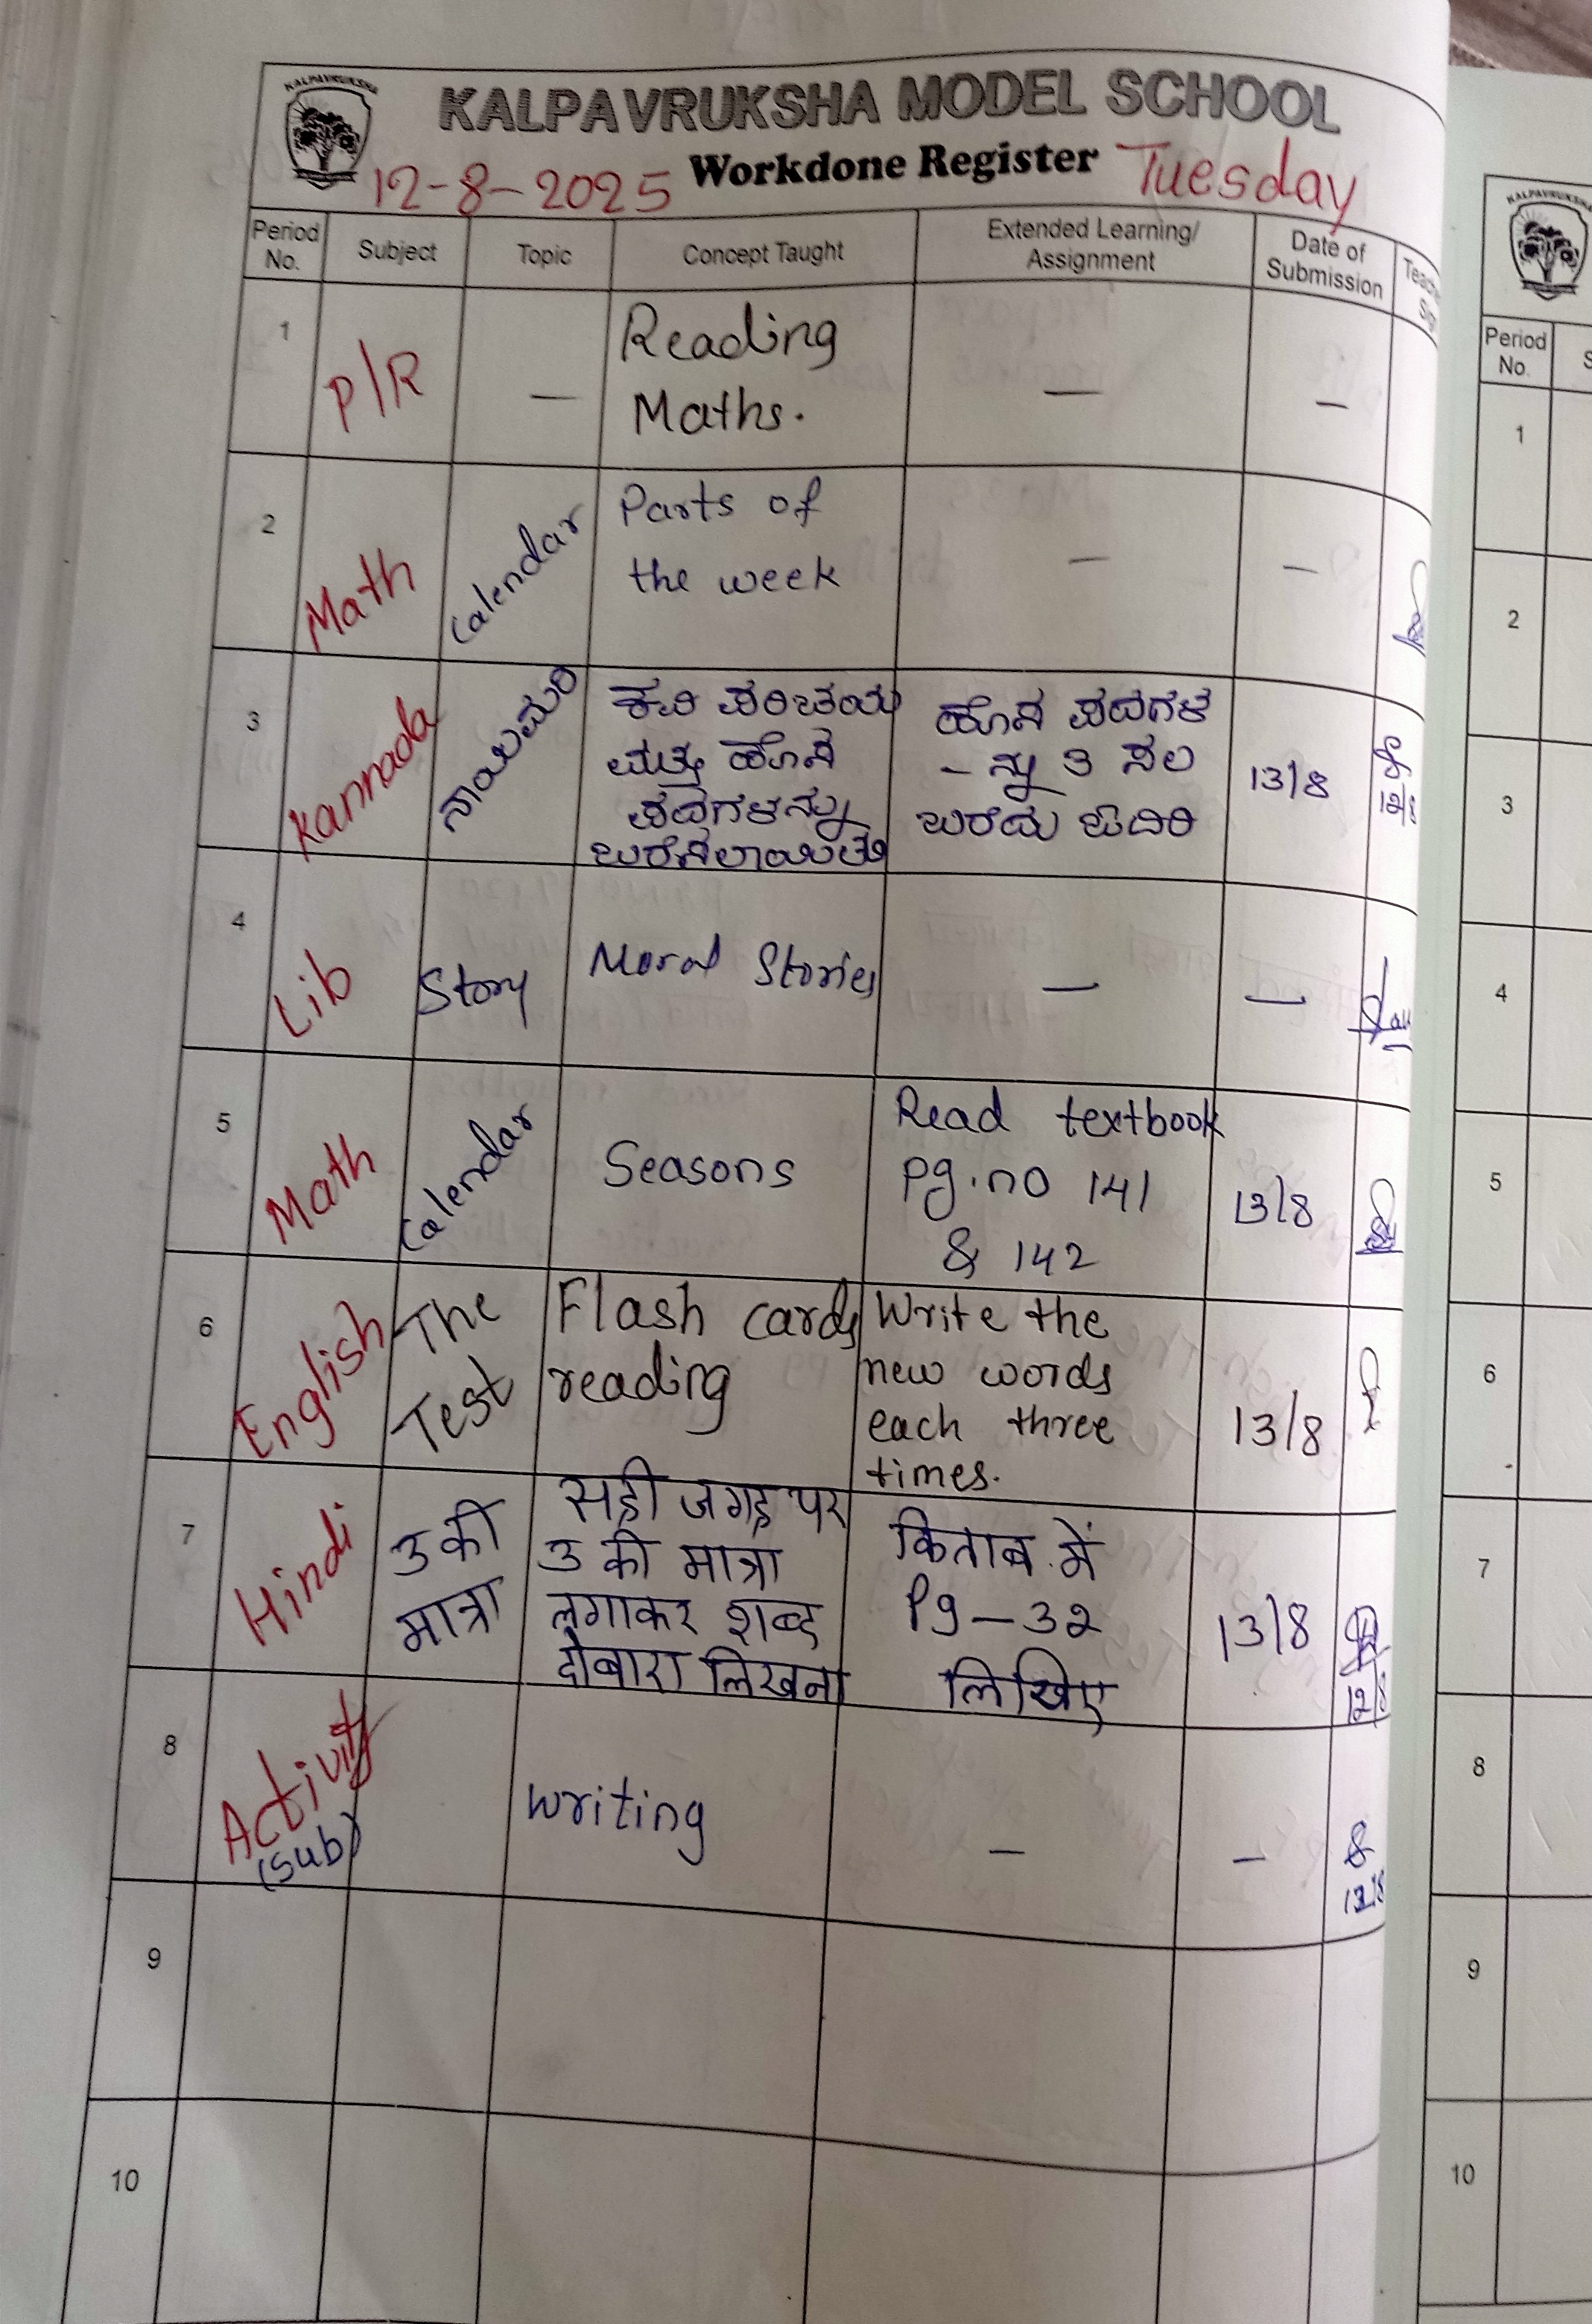 KALPAVRUKSHA
KALPAVRUKSHA MODEL SCHOOL
12-8-2025 Workdone Register Tuesday
Period No. Subject Topic Concept Taught Extended Learning/ Assignment Date of Submission
1 P/R — Reading — —
Maths.
2 Math Calendar Parts of — —
the week
3 Kannada ನಾಯಿಮರಿ ಕವಿ ಪರಿಚಯ ಹೊಸ ಪದಗಳ 13/8
ಮತ್ತು ಹೊಸ - ನ್ನು 3 ಸಲ
ಪದಗಳನ್ನು ಬರೆದು ಓದಿರಿ
ಬರೆಸಲಾಯಿತು
4 Lib Story Moral Stories — —
5 Math Calendar Seasons Read textbook 13/8
pg.no 141
& 142
6 English The Flash cards Write the 13/8
Test reading new words
each three
times.
7 Hindi उ की सही जगह पर किताब में 13/8
मात्रा उ की मात्रा Pg - 32
लगाकर शब्द लिखिए
दोबारा लिखना
12/8
8 Activity writing — —
(sub)
9
10
KALPAVRUKSHA
Period
No.
1
2
3
4
5
6
7
8
9
10